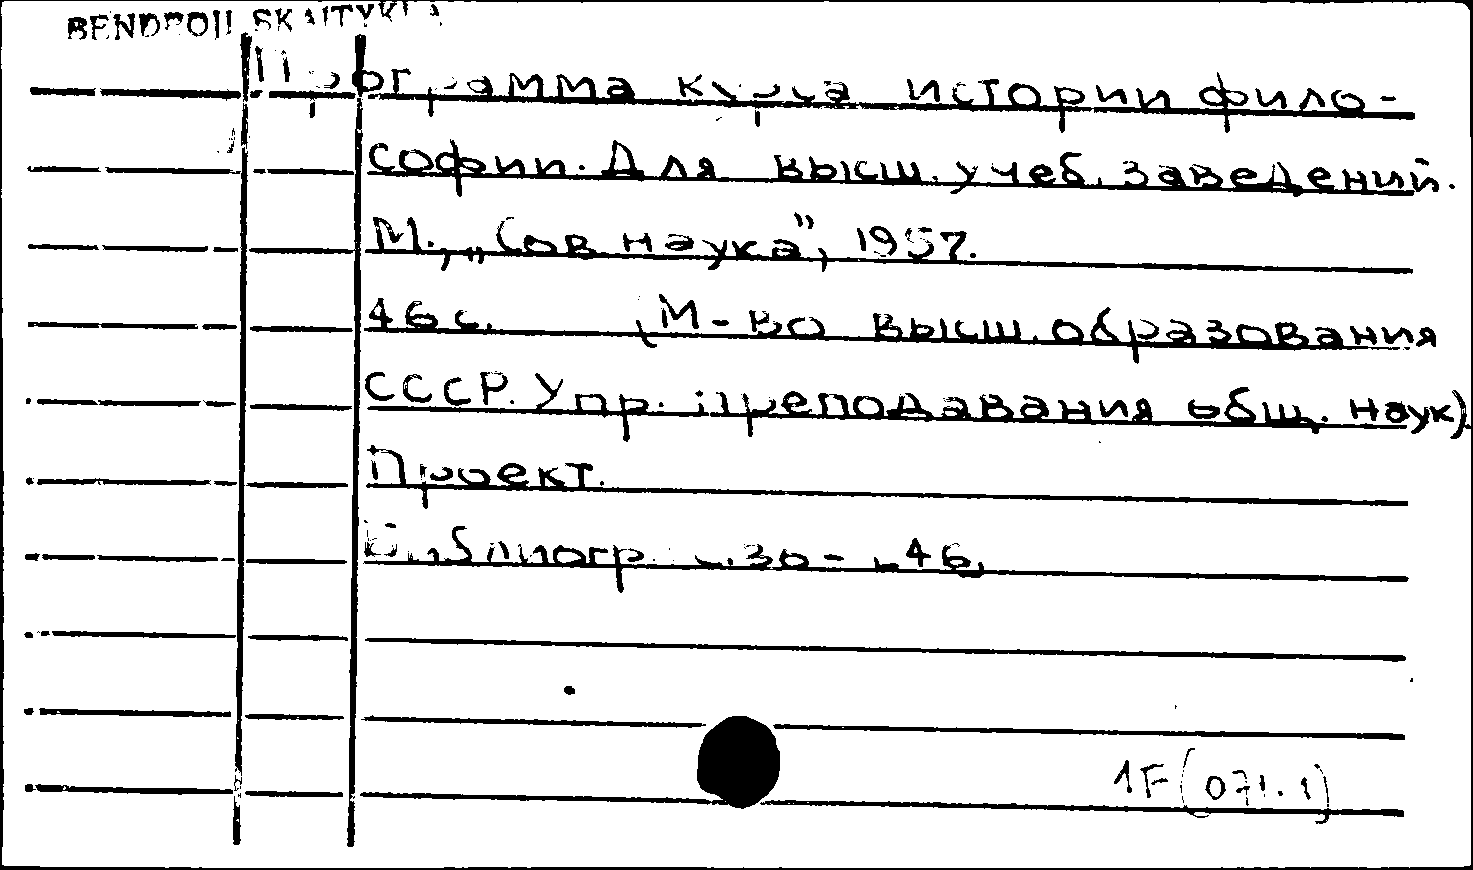 BENDROJI SKAITYKLA
Программа курса истории фило-
софии. Для высш. учеб. заведений.
М., „Сов наука", 1957.
46 с. (М-во высш. образования
СССР. Упр. преподавания общ. наук).
Проект.
Библиогр. с. 30 - 46.
1F(071.1)